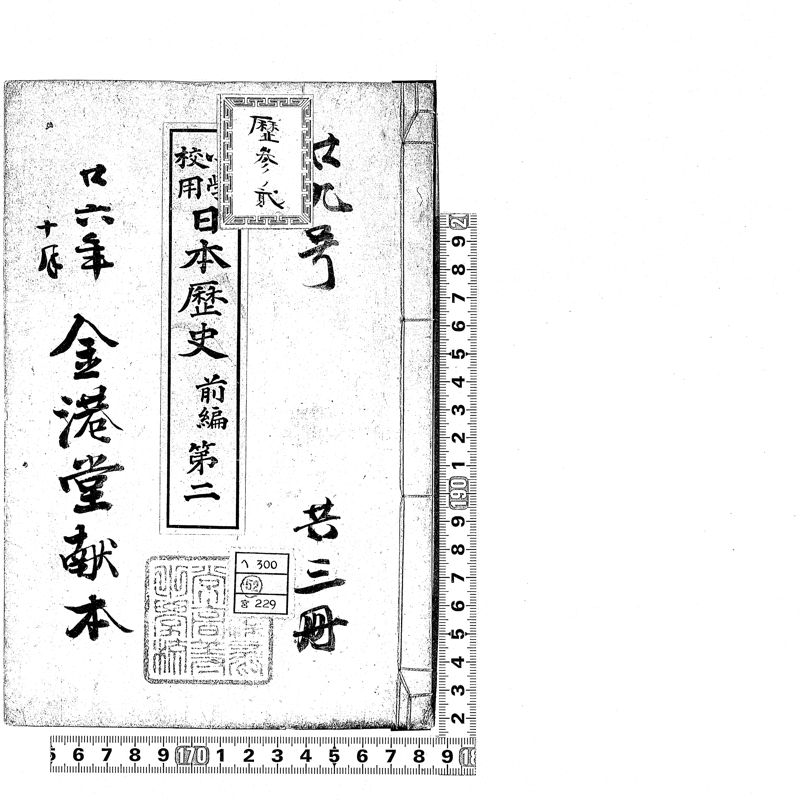 廿九号
共三冊
歴参弐
小学
校用
日本歴史
前編
第二
廿六年
十月
金港堂献本
ヘ 300
52
宮 229
2
9
8
7
6
5
4
3
2
1
190
9
8
7
6
5
4
3
2
5 6 7 8 9 170 1 2 3 4 5 6 7 8 9 18